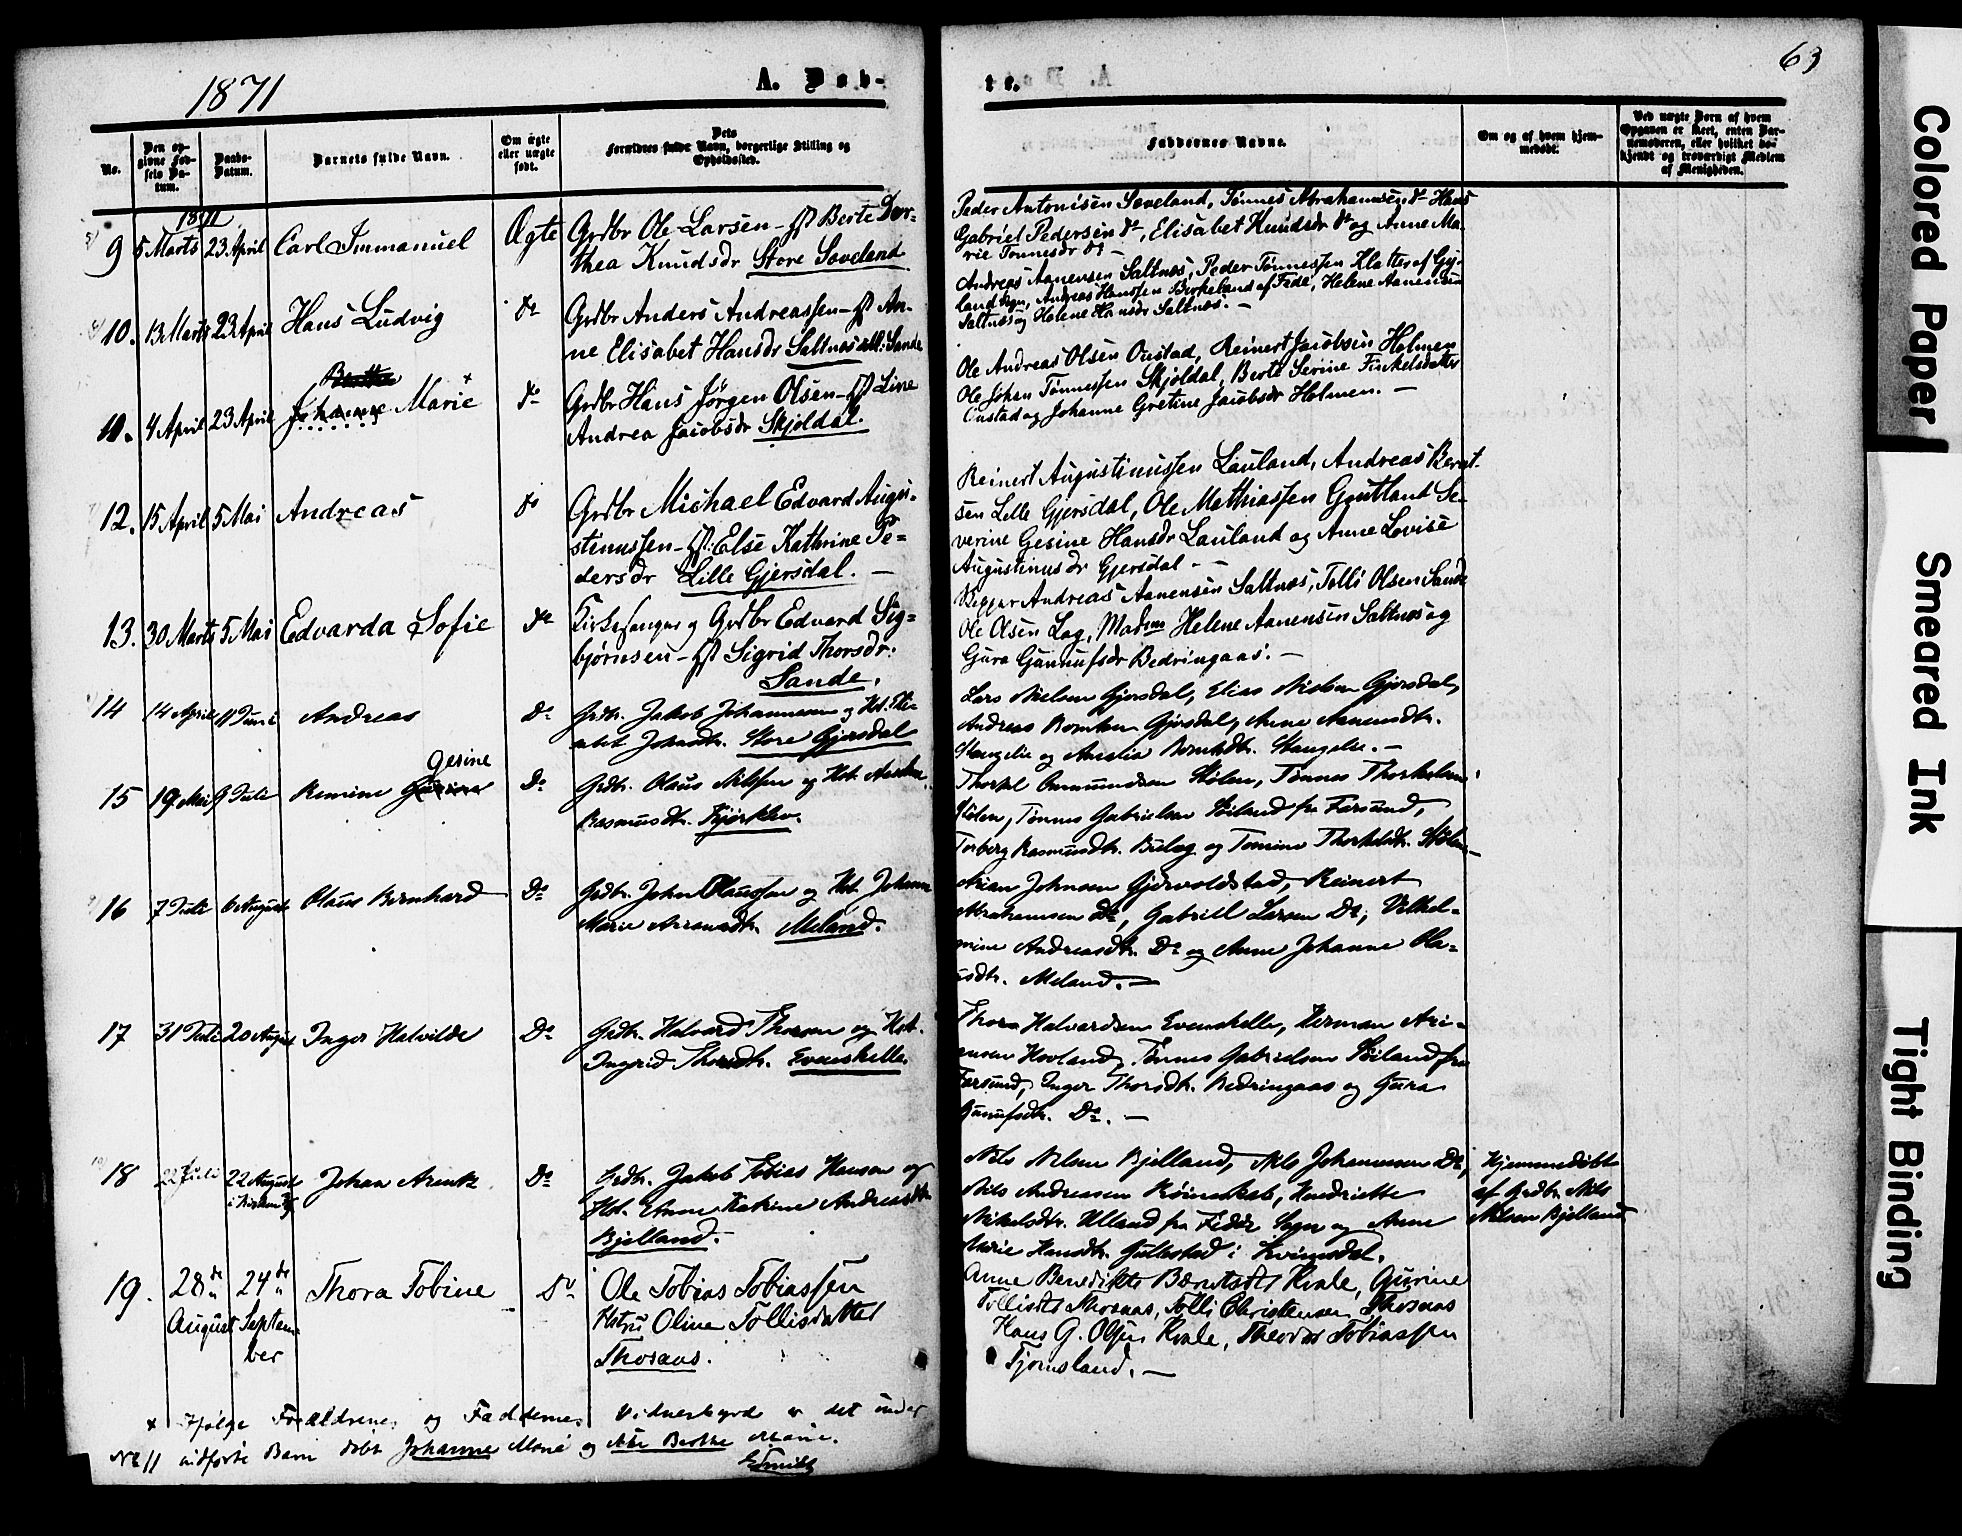 1871
A. Døb-
te.
63
No.
Den opgivne Fødsels Datum.
Daabs-Datum.
Barnets fulde Navn.
Om ægte eller uægte født.
Dets Forældres fulde Navn, borgerlige Stilling og Opholdssted.
Faddernes Navne.
Om og af hvem hjemmedøbt.
Ved uægte Børn af hvem Opgaven er skeet, enten Barnemoderen, eller hvilket bekjendt og troværdigt Medlem af Menigheden.
1871
9 5 Marts 23 April Carl Immanuel Ægte Grdbr Ole Larsen - Hst Berte Dor-
thea Knudsdr Store Søveland
Peder Antonisen Søveland, Tønnes Abrahamsen do Hans
Gabriel Pedersen do, Elisabet Knudsdr do og Anne Ma-
rie Tønnesdr do -
10. 13 Marts 23 April Hans Ludvig do Grdbr Anders Andreassen - Hst An-
ne Elisabet Hansdr Saltnes Sande
Andreas Aanensen Saltnes, Peder Tønnessen Klatter af Gy-
land Sogn, Andreas Hanssen Birkeland af Fede, Helene Aanensen
Saltnes og Helene Hansdr Saltnes. -
Berthe
11. 4 April 23 April Johanne Marie + do Grdbr Hans Jørgen Olsen - Hst Line
Andrea Jacobsdr Skjoldal.
Ole Andreas Olsen Oustad, Reinert Jacobsen Holmen
Ole Johan Tønnessen Skjoldal, Berte Serine
Oustad og Johanne Gretine Jacobsdr Holmen. -
12. 15 April 5 Mai Andreas do Grdbr Michael Edvard Augu-
stinussen - Hst: Else Kathrine Pe-
dersdr Lille Gjersdal. -
Reinert Augustinussen Lauland, Andreas Bernt-
sen Lille Gjersdal, Ole Mathiassen Se-
verine Gesine Hansdr Lauland og Anne Lovise
Augustinusdr Gjersdal - -
13. 30 Marts 5 Mai Edvarda Sofie do Kirkesanger og Grdbr Edvard Sig-
bjørnsen - Hst Sigrid Thorsdr:
Sande.
Andreas Aanensen Saltnes, Tolli Olsen Sande
Ole Olsen Log, Madme Helene Aanensen Saltnes og
Gura Gunnufsdr Bedringaas. -
14 14 April 11 Juni Andreas Do Grdbr. Jakob Johannesen og Hst.
Johnsdtr. Store Gjersdal
Lars Nielsen Gjersdal, Elias Nielsen Gjersdal,
Andreas Berntsen Gjersdal, Anne Aanensdtr.
Stangelie og Amalia Berntsdtr. Stangelie. -
Gesine
15 19 Mai 9 Juli Remine Do Grdbr. Olaus Nilssen og Hst.
Rasmusdtr. Kjørklev.
Thorkel Ommundsen Stølen, Tønnes Thorkelsen
Stølen, Tønnes Gabrielsen Øiland fra Farsund,
Torberg Rasmusdtr. Bulæg og Tomine Thorkelsdtr. Stølen -
16 7 Juli 6 August Olaus Bernhard Do Grdbr. John Olaussen og Hst. Johanne
Marie Meland.
Arian Johnsen Gjervoldstad, Reinert
Abrahamsen Do, Gabriel Larsen Do, Vilhel-
mine Andreasdtr. Do og Anne Johanne Ola-
usdtr. Meland. -
17 31 Juli 20 August Inger Halvilde Do Grdbr. Halvard Thorsen og Hst.
Ingrid Thorsdtr. Evenskelle.
Thore Halvardsen Evenskelle, Herman Ari-
ansen Hovland, Tønnes Gabrielsen Øiland fra
Farsund, Inger Thorsdtr. Bedringaas og Gura
Gunufsdtr. Do. -
18 22 Juli 22 August i Kirken Johan Arentz Do Grdbr. Jakob Tobias Hansen og
Hst. Katrine Andreasdtr.
Bjelland. -
Nils Nilsen Bjelland, Nils Johannesen Do,
Nils Andreasen Røineskab, Hendriette
Nikelsdtr. Ulland fra Fede Sogn og Anne
Marie Hansdtr. Gullestad i Kvinesdal.
Hjemmedøbt
af Grdbr. Nils
Nilsen Bjelland
19. 28de August 24de September Thora Tobine Do Ole Tobias Tobiassen
Hstru Oline Tollisdatter
Thosaas.
Anne Benedikte Berntsdtr Kvale, Gurine
Tollisdtr Thosaas, Tolli Christensen Thosaas
Hans G. Olsen Kvale, Theodor Tobiassen
Tjomsland. -
+ Ifølge Forældrenes og Faddernes Vidnesbyrd er det under
No 11 indførte Barn døbt Johanne Marie og ikke Berthe Marie.
ESmith
Colored Paper
Smeared Ink
Tight Binding